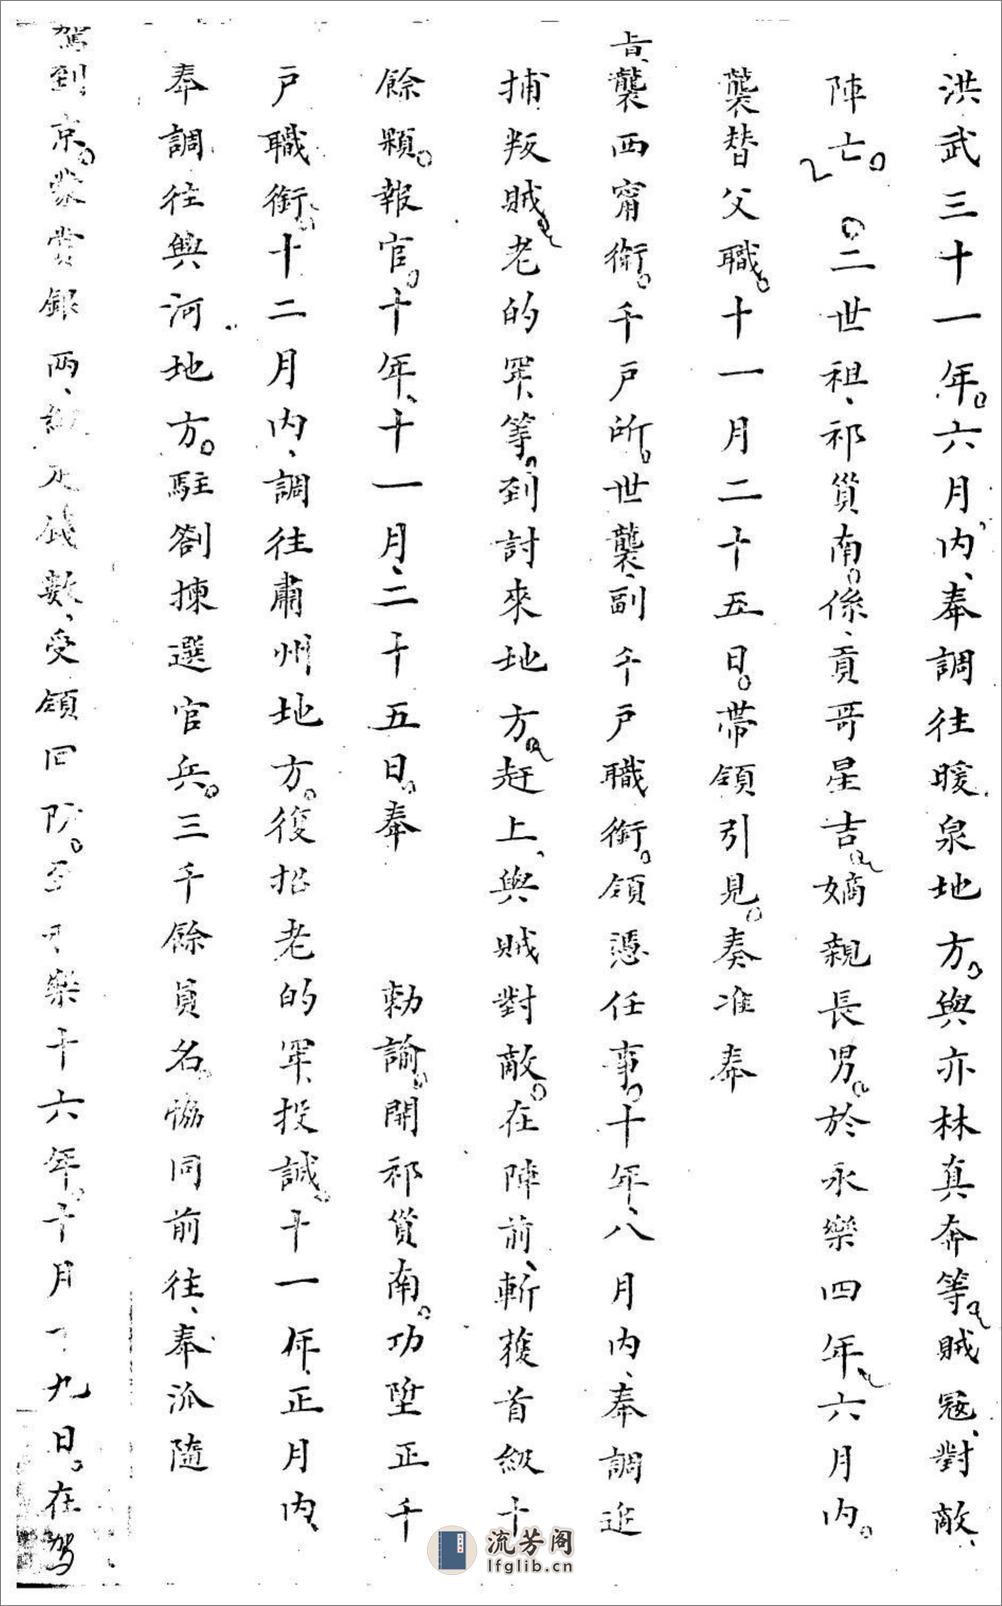 洪武三十一年六月內奉調往暖泉地方與亦林真奔等賊寇對敵
陣亡 二世祖祁貨南係貢哥星吉嫡親長男於永樂四年六月內
襲替父職十一月二十五日帶領引見奏准奉
旨襲西甯衛千戶所世襲副千戶職銜領憑任事十年八月內奉調追
捕叛賊老的罕等到討來地方赶上與賊對敵在陣前斬獲首級十
餘顆報官十年十一月二十五日奉 勅諭開祁貨南功陞正千
戶職銜十二月內調往肅州地方復招老的罕投誠十一年正月內
奉調往興河地方駐劄揀選官兵三千餘員名協同前往奉派隨
駕到京蒙賞銀兩 疋錢數受領回防至 樂十六年十月 九日在駕
流芳阁
lfglib.cn